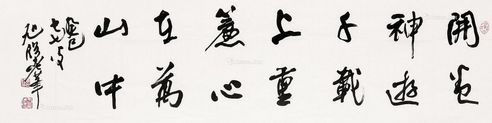 開卷
神遊
千載
上垂
簾心
在萬
山中